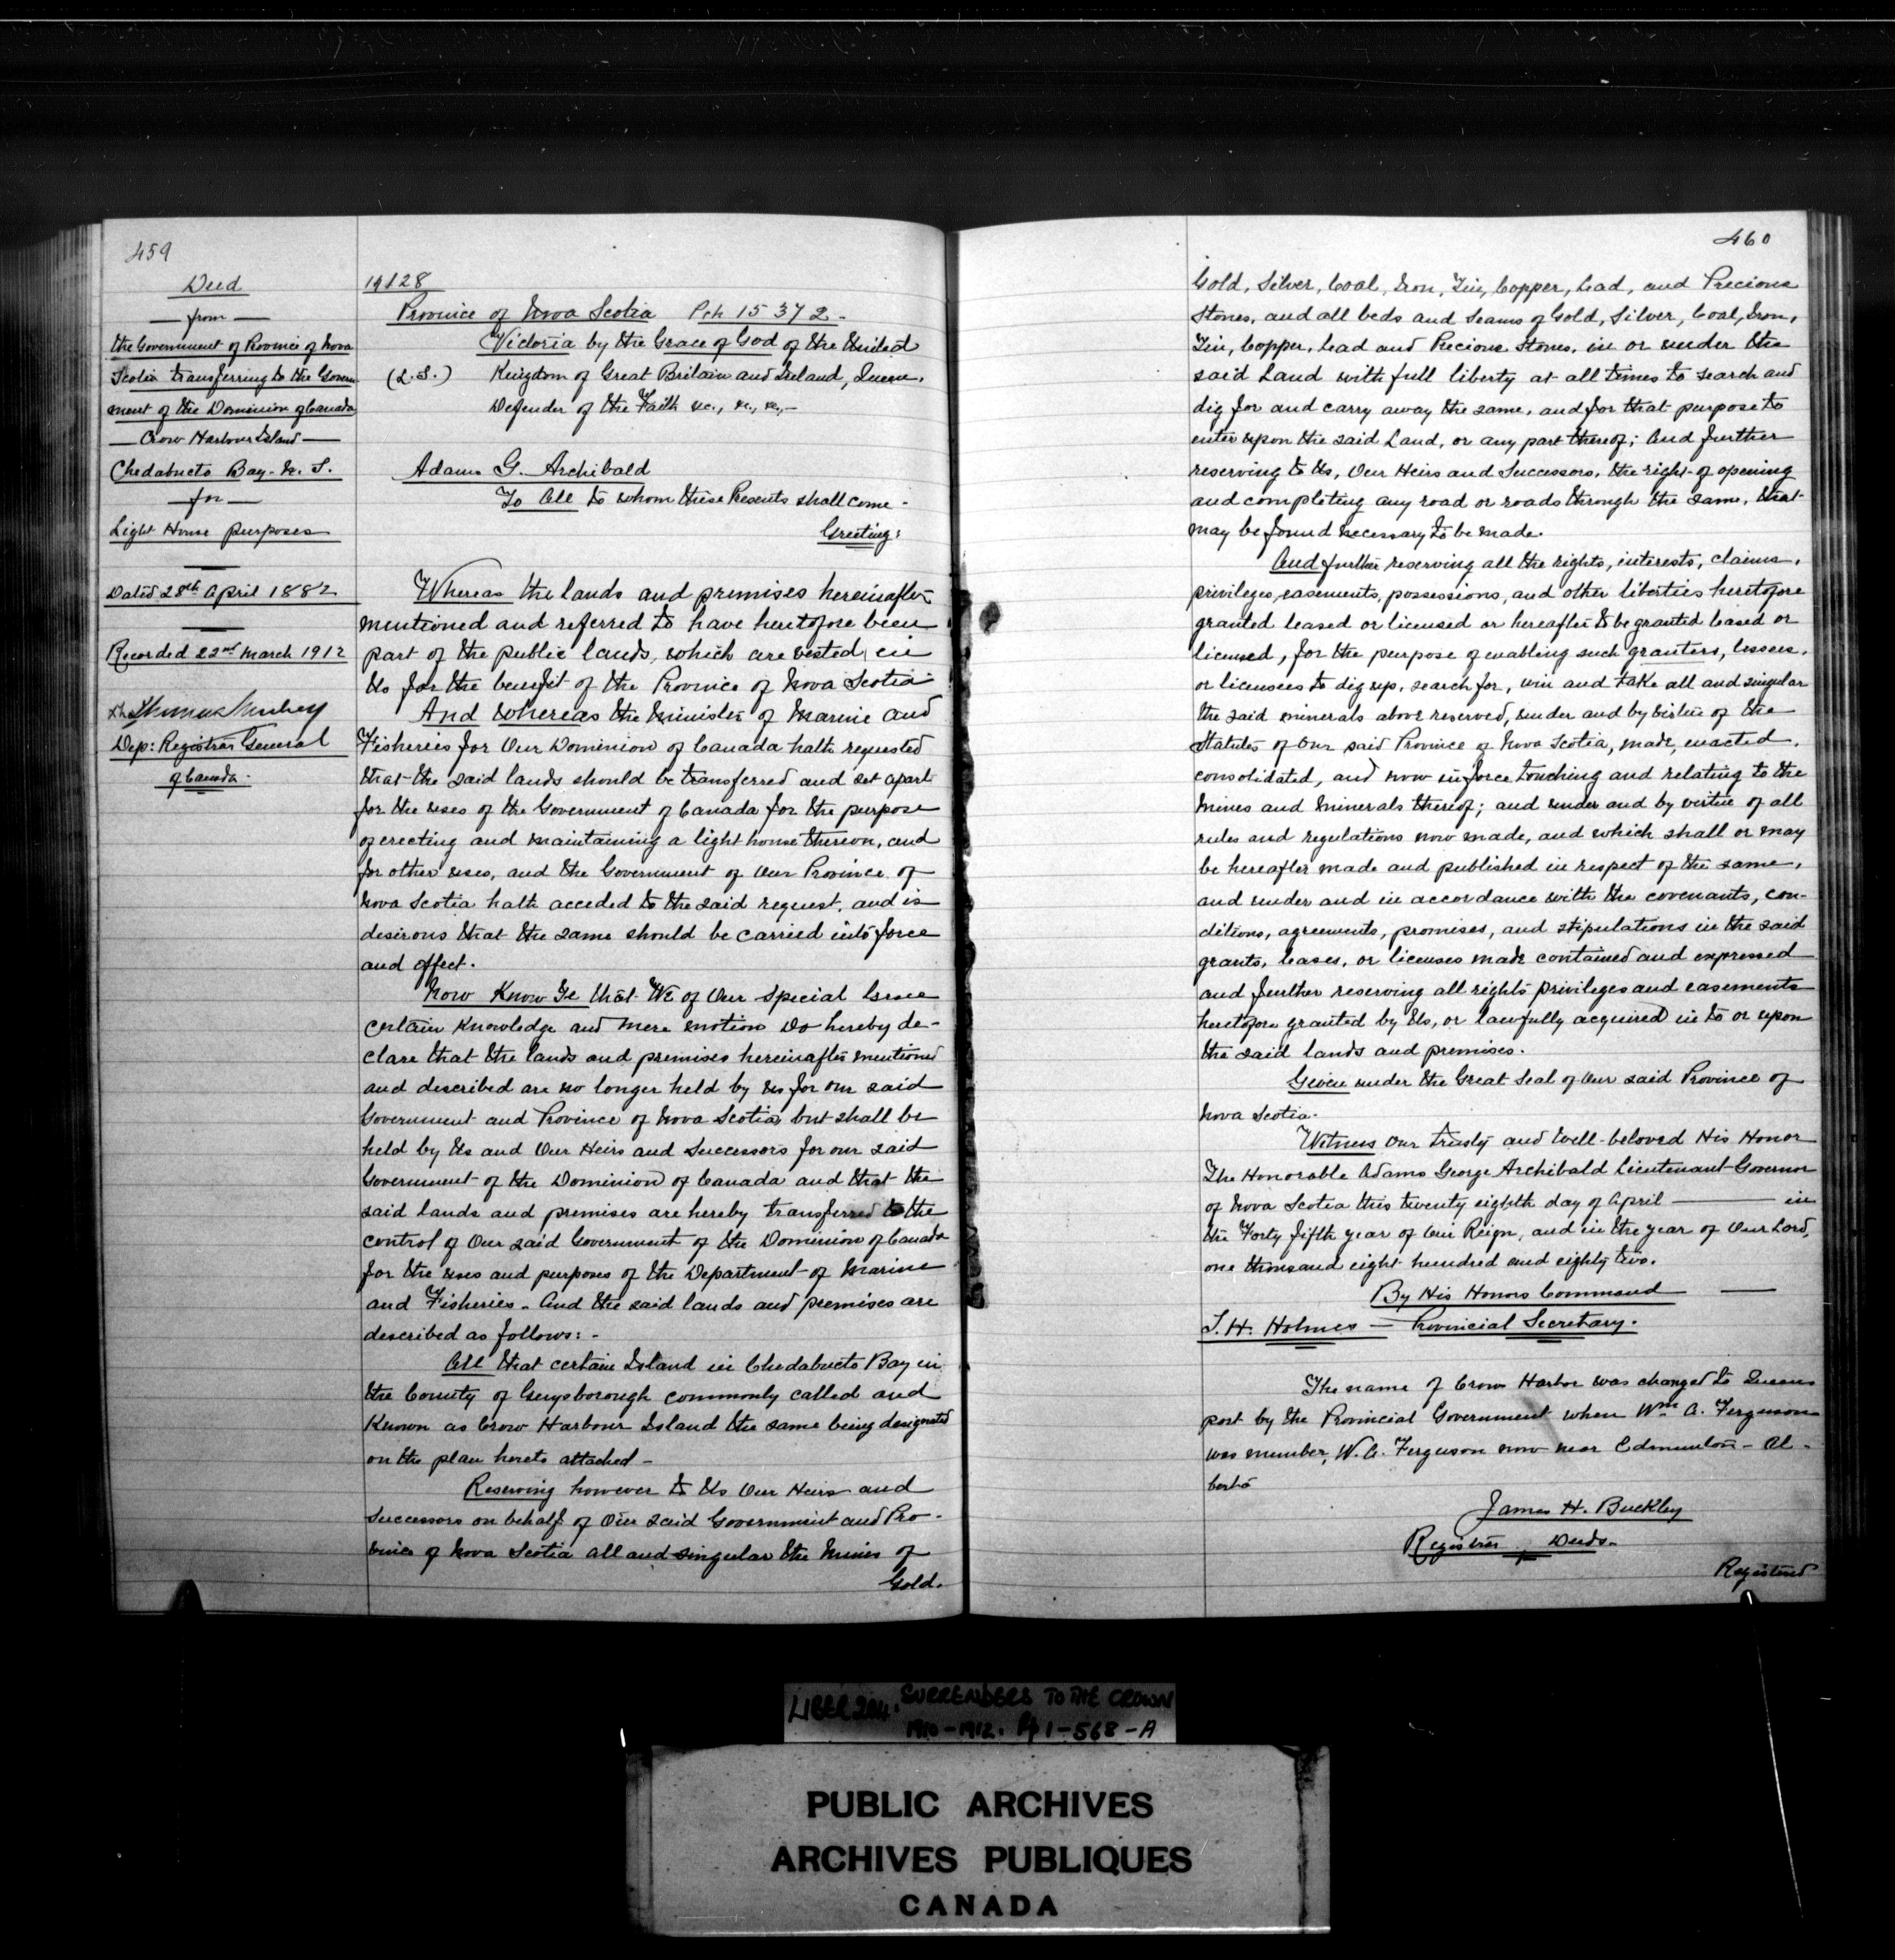 459
Deed
from
the Government of Province of Nova
Scotia transferring to the Govern
ment of the Dominion of Canada
Crow Harbour Island
Chedabucto Bay - N. S.
for
Light House purposes
Dated 28th April 1882
Recorded 22nd March 1912
Dep: Registrar General
of Canada.
19128
Province of Nova Scotia Pch 15372-
Victoria by the Grace of God of the United
(L.S.) Kingdom of Great Britain and Ireland, Queen,
Defender of the Faith &c., &c., &c.,-
Adams G. Archibald
To All to whom these Presents shall come-
Greeting:
Whereas the lands and premises hereinafter
mentioned and referred to have heretofore been
part of the public lands, which are vested in
Us for the benefit of the Province of Nova Scotia
And whereas the Minister of Marine and
Fisheries for Our Dominion of Canada hath requested
that the said lands should be transferred and set apart
for the uses of the Government of Canada for the purpose
of erecting and maintaining a light house thereon, and
for other uses, and the Government of Our Province of
Nova Scotia hath acceded to the said request, and is
desirous that the same should be carried into force
and effect.
Now Know Ye that We of Our Special Grace
certain knowledge and mere motion Do hereby de-
clare that the lands and premises hereinafter mentioned
and described are no longer held by us for our said
Government and Province of Nova Scotia but shall be
held by Us and Our Heirs and Successors for our said
Government of the Dominion of Canada and that the
said lands and premises are hereby transferred to the
control of Our said Government of the Dominion of Canada
for the uses and purposes of the Department of Marine
and Fisheries. And the said lands and premises are
described as follows:-
All that certain Island in Chedabucto Bay in
the County of Guysborough commonly called and
known as Crow Harbour Island the same being designated
on the plan hereto attached-
Reserving however to Us Our Heirs and
Successors on behalf of Our said Government and Pro-
vince of Nova Scotia all and singular the Mines of
Gold.
460
Gold, Silver, Coal, Iron, Tin, Copper, Lead, and Precious
Stones, and all beds and seams of Gold, Silver, Coal, Iron,
Tin, Copper, Lead and Precious Stones, in or under the
said Land with full liberty at all times to search and
dig for and carry away the same, and for that purpose to
enter upon the said Land, or any part thereof; And further
reserving to Us, Our Heirs and Successors, the right of opening
and completing any road or roads through the same, that
may be found necessary to be made.
And further reserving all the rights, interests, claims,
privileges, easements, possessions, and other liberties heretofore
granted leased or licensed or hereafter to be granted leased or
licensed, for the purpose of enabling such granters, lessees,
or licensees to dig up, search for, win and take all and singular
the said minerals above reserved, under and by virtue of the
Statutes of Our said Province of Nova Scotia, made, enacted,
consolidated, and now in force touching and relating to the
Mines and Minerals thereof; and under and by virtue of all
rules and regulations now made, and which shall or may
be hereafter made and published in respect of the same,
and under and in accordance with the covenants, con-
ditions, agreements, promises, and stipulations in the said
grants, leases, or licenses made contained and expressed
and further reserving all rights privileges and easements
heretofore granted by Us, or lawfully acquired in to or upon
the said lands and premises.
Given under the Great Seal of Our said Province of
Nova Scotia.
Witness Our trusty and Well-beloved His Honor
The Honorable Adams George Archibald Lieutenant-Governor
of Nova Scotia this twenty eighth day of April in
the Forty fifth year of Our Reign, and in the year of Our Lord,
one thousand eight hundred and eighty two.
By His Honors Command
S. H. Holmes - Provincial Secretary.
The name of Crow Harbor was changed to Queens
port by the Provincial Government when Wm A. Ferguson
was member, W. A. Ferguson now near Edmunton - Al-
berta
James H. Buckley
Registrar, Deeds-
Registered
LIBER 204. SURRENDERS TO THE CROWN
1910-1912. Pp 1-568-A
PUBLIC ARCHIVES
ARCHIVES PUBLIQUES
CANADA